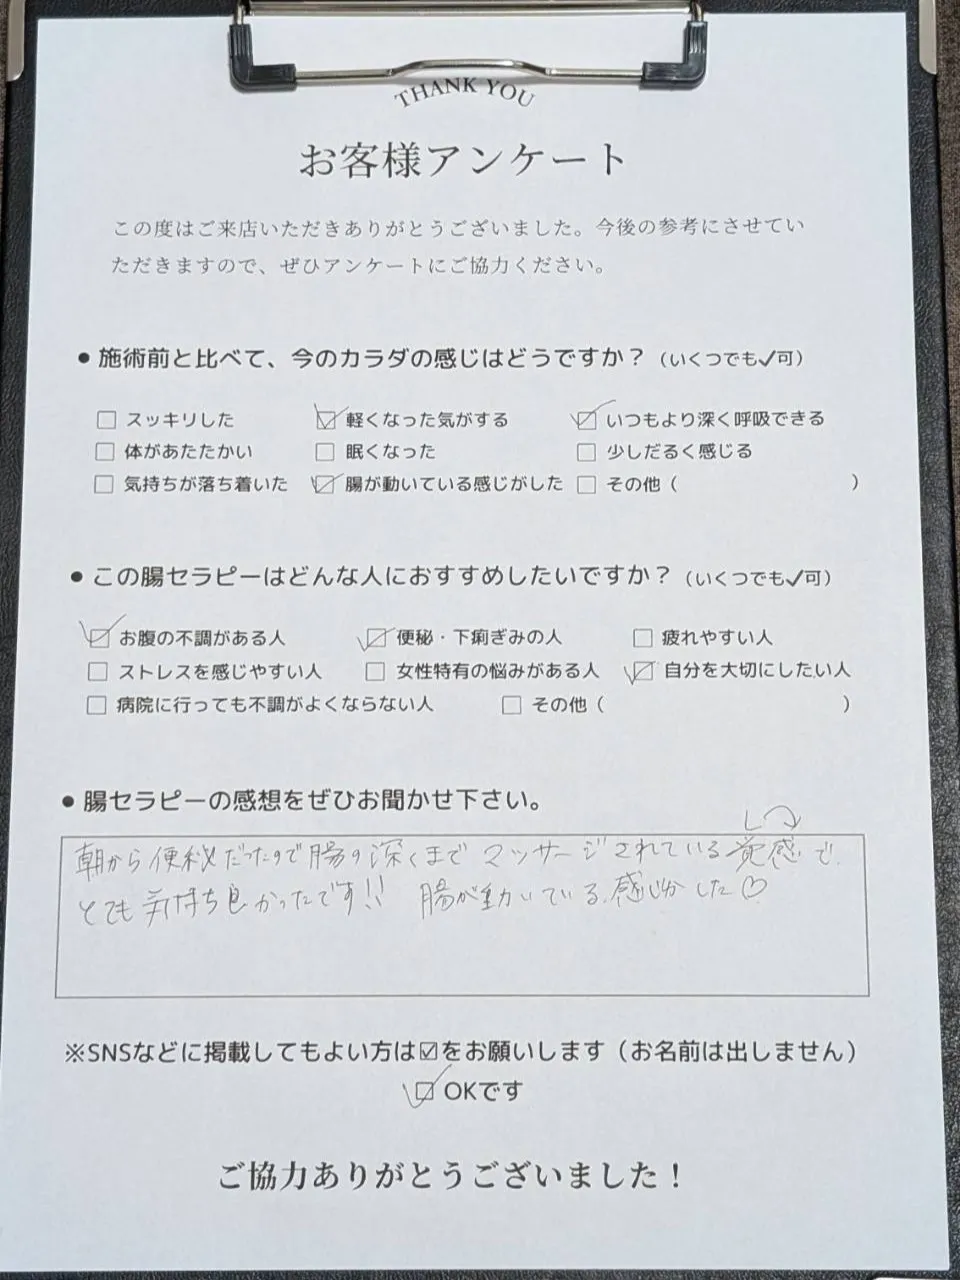 THANK YOU
お客様アンケート
この度はご来店いただきありがとうございました。今後の参考にさせてい
ただきますので、ぜひアンケートにご協力ください。
● 施術前と比べて、今のカラダの感じはどうですか？（いくつでも✓可）
☐ スッキリした ☑ 軽くなった気がする ☑ いつもより深く呼吸できる
☐ 体があたたかい ☐ 眠くなった ☐ 少しだるく感じる
☐ 気持ちが落ち着いた ☑ 腸が動いている感じがした ☐ その他（ ）
● この腸セラピーはどんな人におすすめしたいですか？（いくつでも✓可）
☑ お腹の不調がある人 ☑ 便秘・下痢ぎみの人 ☐ 疲れやすい人
☐ ストレスを感じやすい人 ☐ 女性特有の悩みがある人 ☑ 自分を大切にしたい人
☐ 病院に行っても不調がよくならない人 ☐ その他（ ）
● 腸セラピーの感想をぜひお聞かせ下さい。
朝から便秘だったので腸の深くまでマッサージされている覚感で、
とても気持ち良かったです!! 腸が動いている感じがした♡
※SNSなどに掲載してもよい方は☑をお願いします（お名前は出しません）
☑ OKです
ご協力ありがとうございました！